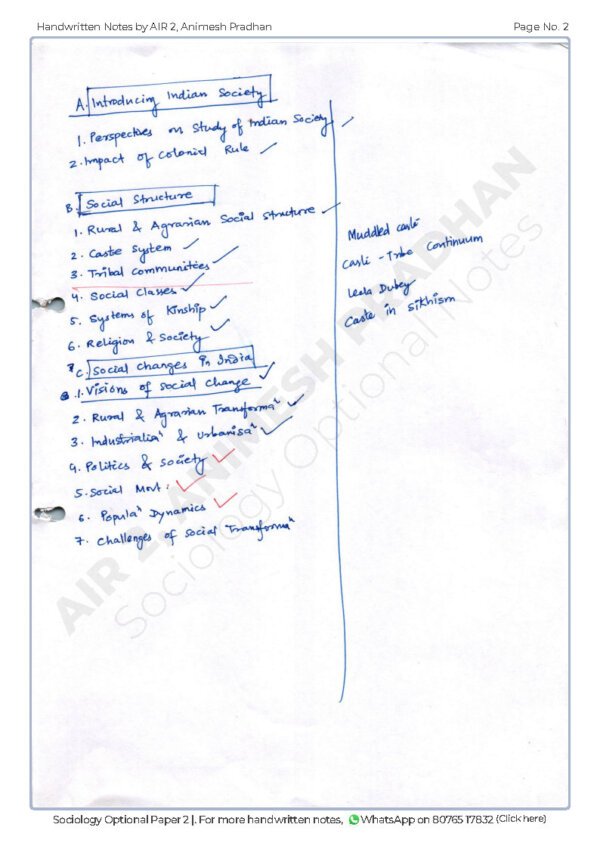 Handwritten Notes by AIR 2, Animesh Pradhan
Page No. 2
A. Introducing Indian Society
1. Perspectives on Study of Indian Society
2. Impact of Colonial Rule
B. Social Structure
1. Rural & Agrarian Social Structure
2. Caste System
3. Tribal Communities
4. Social Classes
5. Systems of Kinship
6. Religion & Society
C. Social Changes in India
1. Visions of Social Change
2. Rural & Agrarian Transformaⁿ
3. Industrialisⁿ & Urbanisaⁿ
4. Politics & Society
5. Social Movt:
6. Populaⁿ Dynamics
7. Challenges of Social Transformaⁿ
Muddled caste
Caste - Tribe Continuum
Leela Dubey
Caste in Sikhism
AIR 2, ANIMESH PRADHAN
Sociology Optional Notes
Sociology Optional Paper 2 |. For more handwritten notes, WhatsApp on 80765 17832 (Click here)